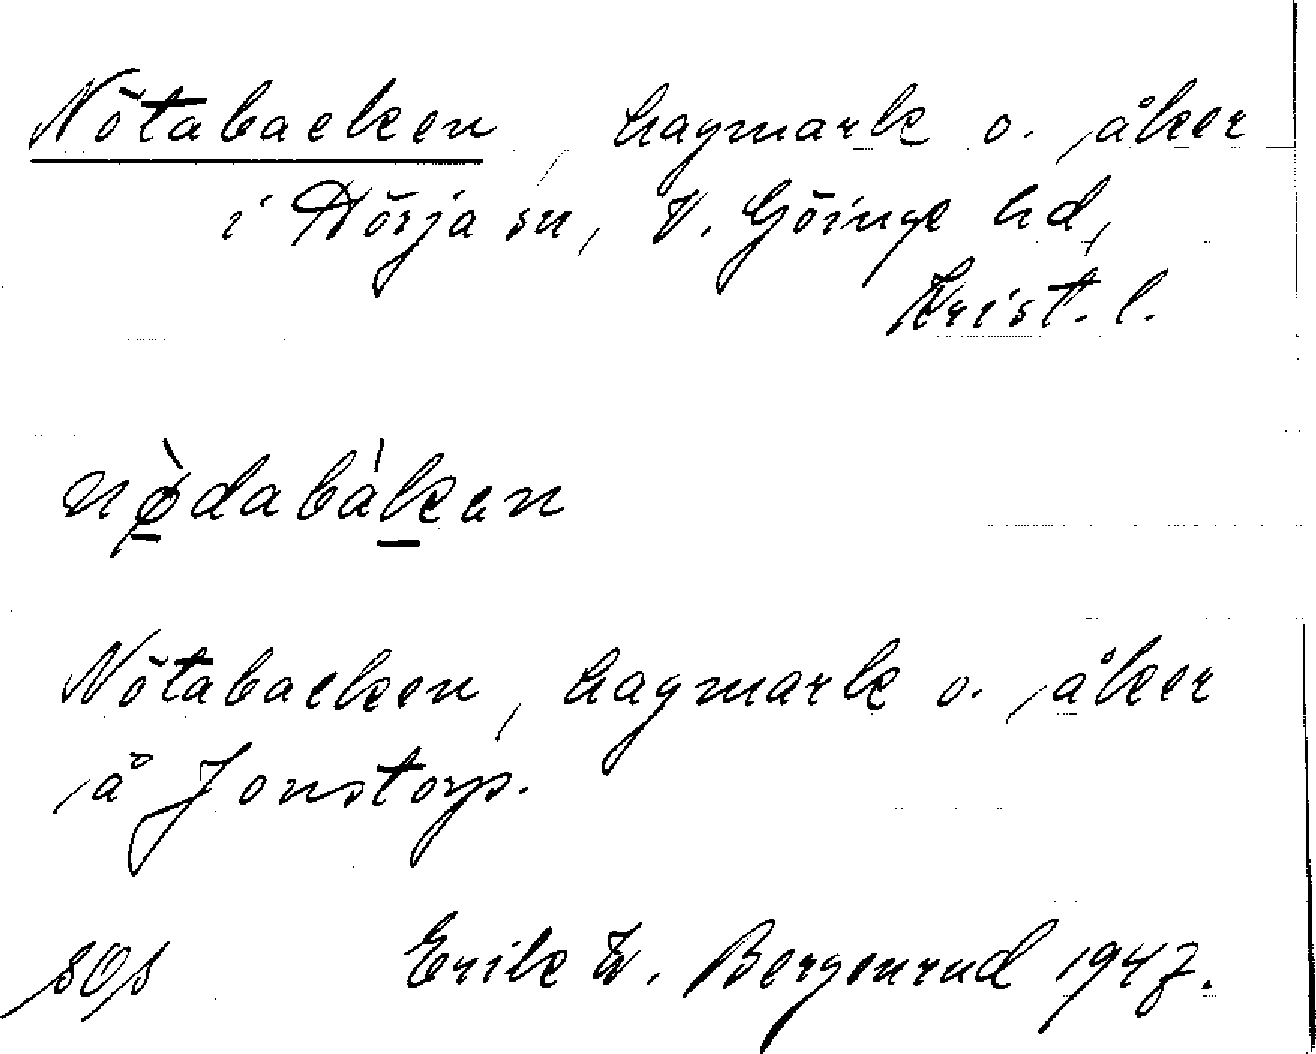 Nötabacken, hagmark o. åker
i Nösja sn, V. Göinge hd,
Krist. l.
nø̀dabàkan
Nötabacken, hagmark o. åker
å Jonstorp.
Erik W. Bergenrud 1947.